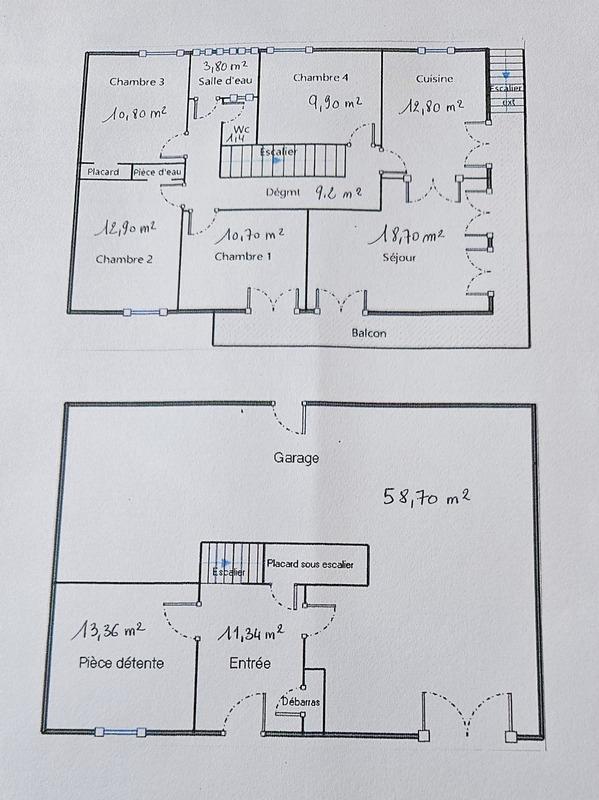 Chambre 3
10,80 m²
3,80 m²
Salle d'eau
Chambre 4
9,90 m²
Cuisine
12,80 m²
Escalier
ext
Wc
1,4
Escalier
Placard
Pièce d'eau
Dégmt 9.2 m²
12,90 m²
Chambre 2
10,70 m²
Chambre 1
18,70 m²
Séjour
Balcon
Garage
58,70 m²
Escalier
Placard sous escalier
13,36 m²
Pièce détente
11,34 m²
Entrée
Débarras